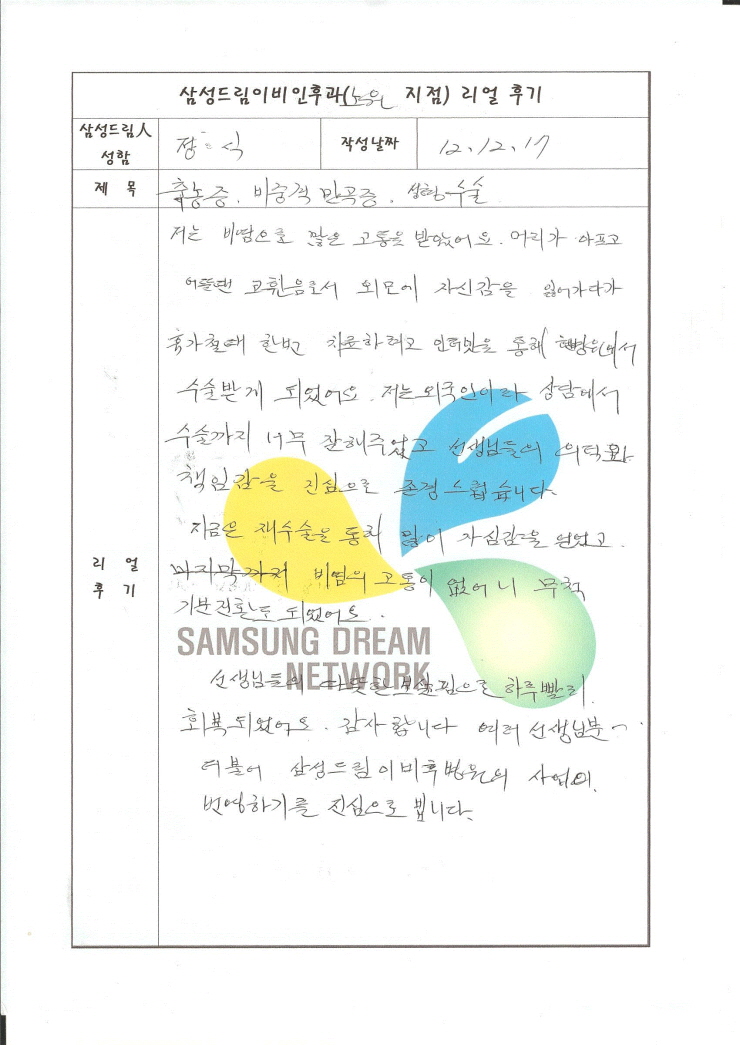 삼성드림이비인후과(노원 지점) 리얼 후기
삼성드림人 성함
정 식
작성날짜
12.12.17
제 목
축농증. 비중격 만곡증. 성형수술
리 얼 후 기
저는 비염으로 많은 고통을 받았어요. 머리가 아프고
어쩔땐 코휜음로서 외모에 자신감을 잃어가다가
휴가철때 한번 치료하려고 인터넷을 통해 병원에서
수술받게 되었어요. 저는 외국인이라 상담에서
수술까지 너무 잘해주었고 선생님들의 의덕과
책임감을 진심으로 존경스럽습니다.
지금은 재수술을 통해 많이 자심감을 얻었고.
마지막까지 비염의 고통이 없어니 무척
기분전환도 되었어요.
SAMSUNG DREAM
NETWORK
선생님들의 따뜻한 보살핌으로 하루빨리
회복되었어요. 감사합니다 여러 선생님분
더불어 삼성드림이비후병원의 사업의
번영하기를 진심으로 빕니다.